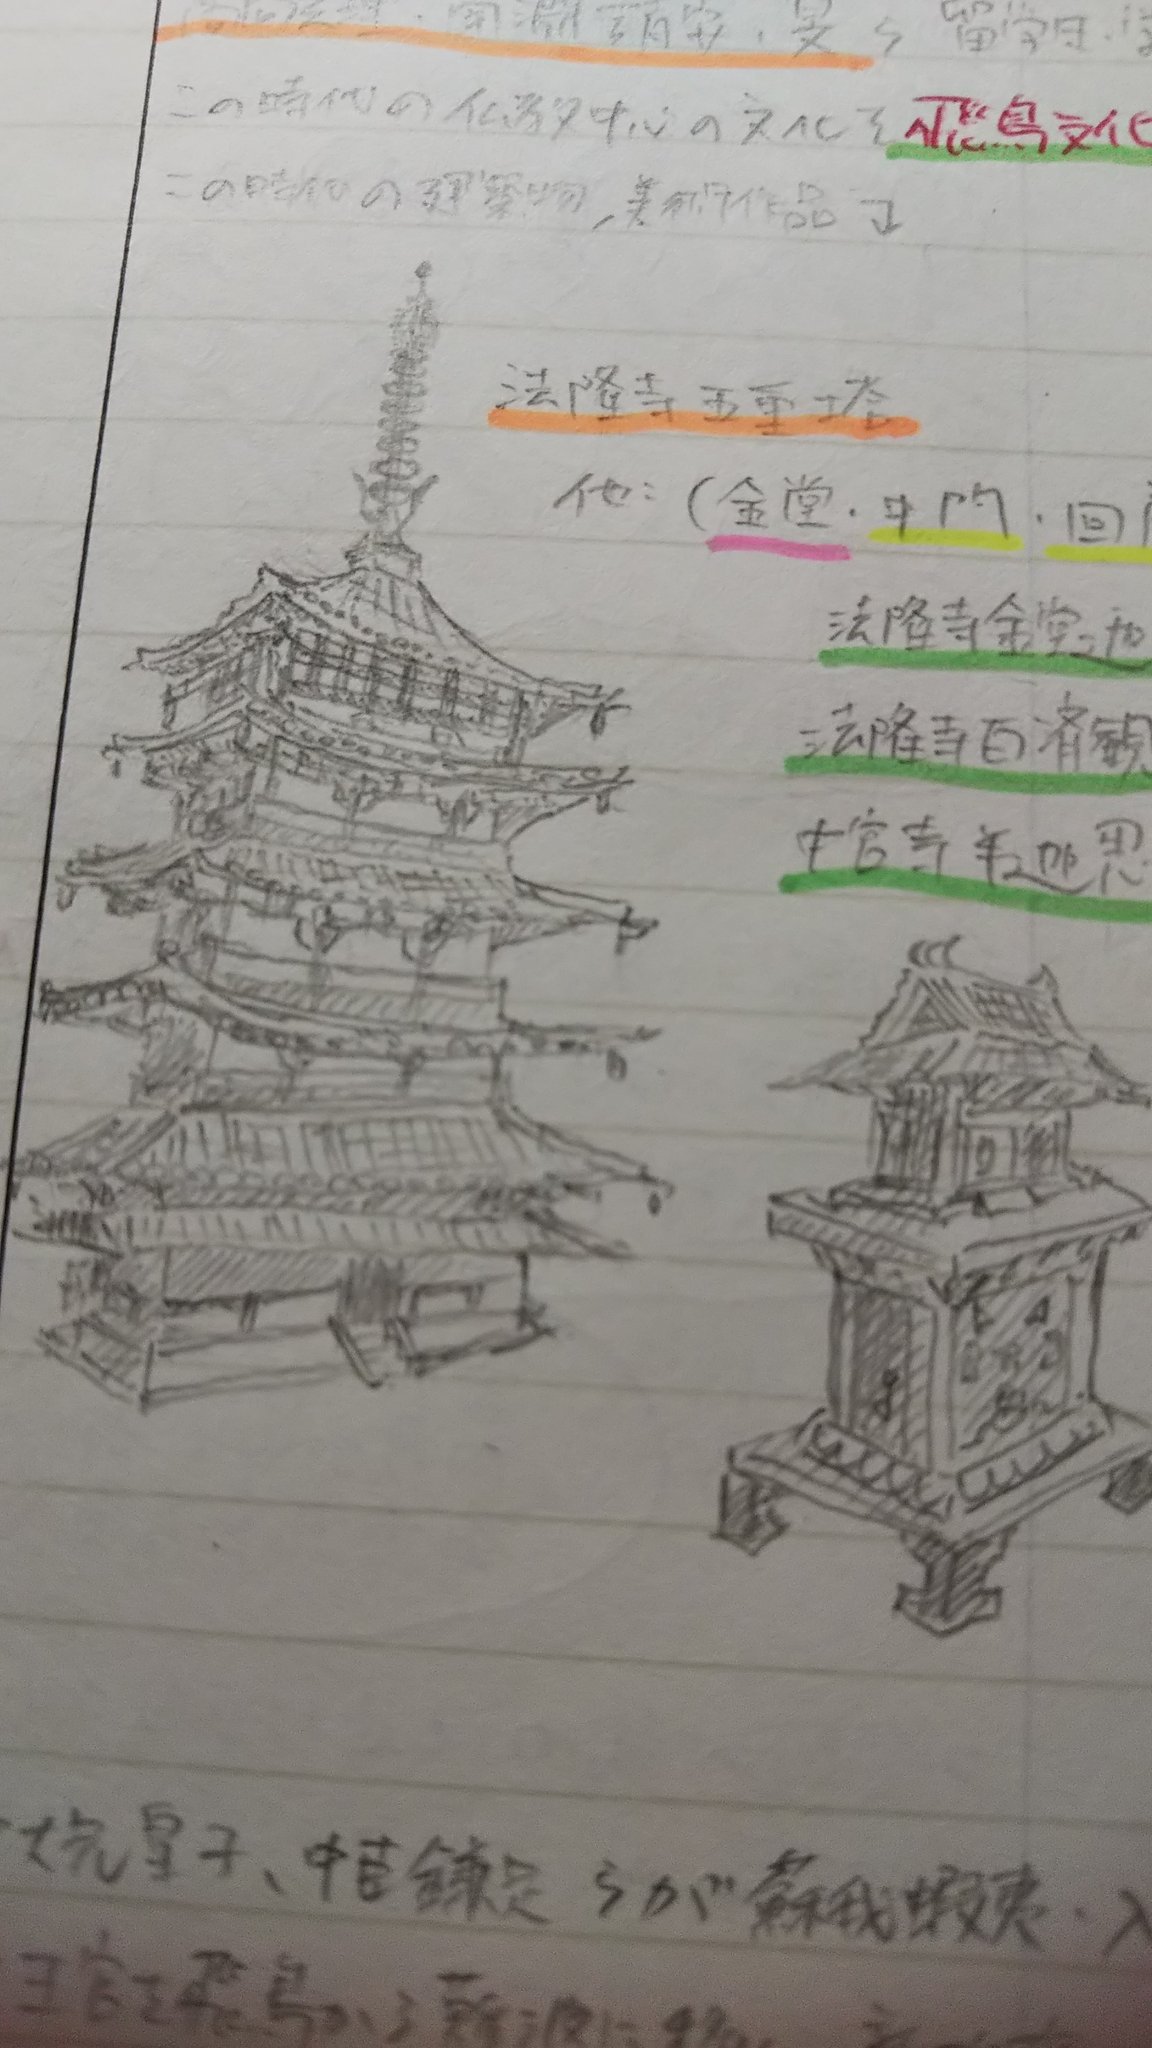 南淵請安・旻ら留学生・学
この時代の仏教中心の文化を飛鳥文化
この時代の建築物、美術作品↴
法隆寺五重塔
他:(金堂・中門・回
法隆寺金堂釈迦
法隆寺百済観
中宮寺半跏思
大兄皇子、中臣鎌足らが蘇我蝦夷・入
王宮を飛鳥から難波に移し、